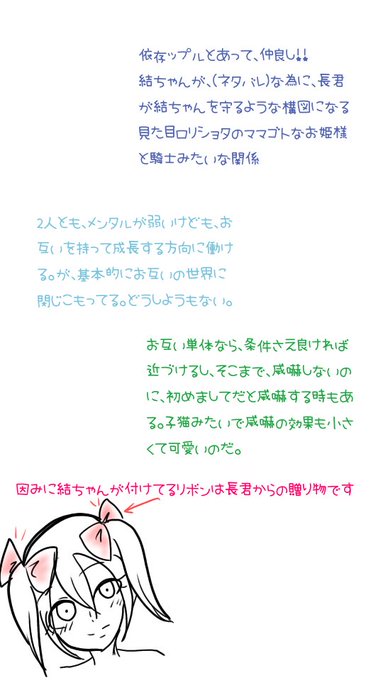 依存ップルとあって、仲良し!!
結ちゃんが、(ネタバレ)な為に、長君
が結ちゃんを守るような構図になる
見た目ロリショタのママゴトなお姫様
と騎士みたいな関係
2人とも、メンタルが弱いけども、お
互いを持って成長する方向に働け
る。が、基本的にお互いの世界に
閉じこもってる。どうしようもない。
お互い単体なら、条件さえ良ければ
近づけるし、そこまで、威嚇しないの
に、初めましてだと威嚇する時もあ
る。子猫みたいで威嚇の効果も小さ
くて可愛いのだ。
因みに結ちゃんが付けてるリボンは長君からの贈り物です